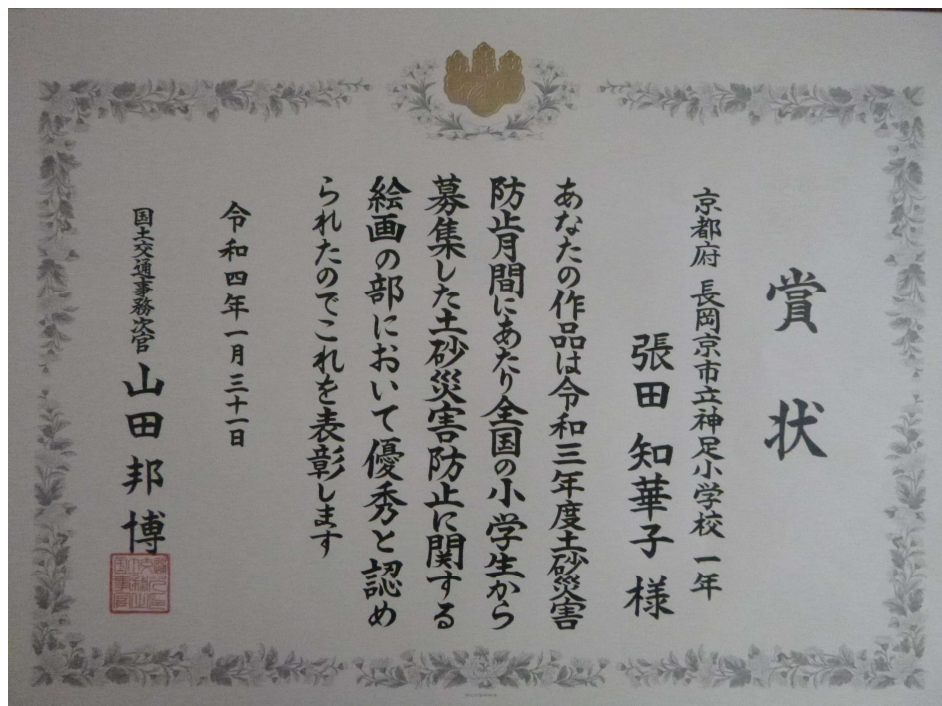 賞状
京都府 長岡京市立神足小学校 一年
張田 知華子 様
あなたの作品は令和三年度土砂災害
防止月間にあたり全国の小学生から
募集した土砂災害防止に関する
絵画の部において優秀と認め
られたのでこれを表彰します
令和四年一月三十一日
国土交通事務次官 山田邦博